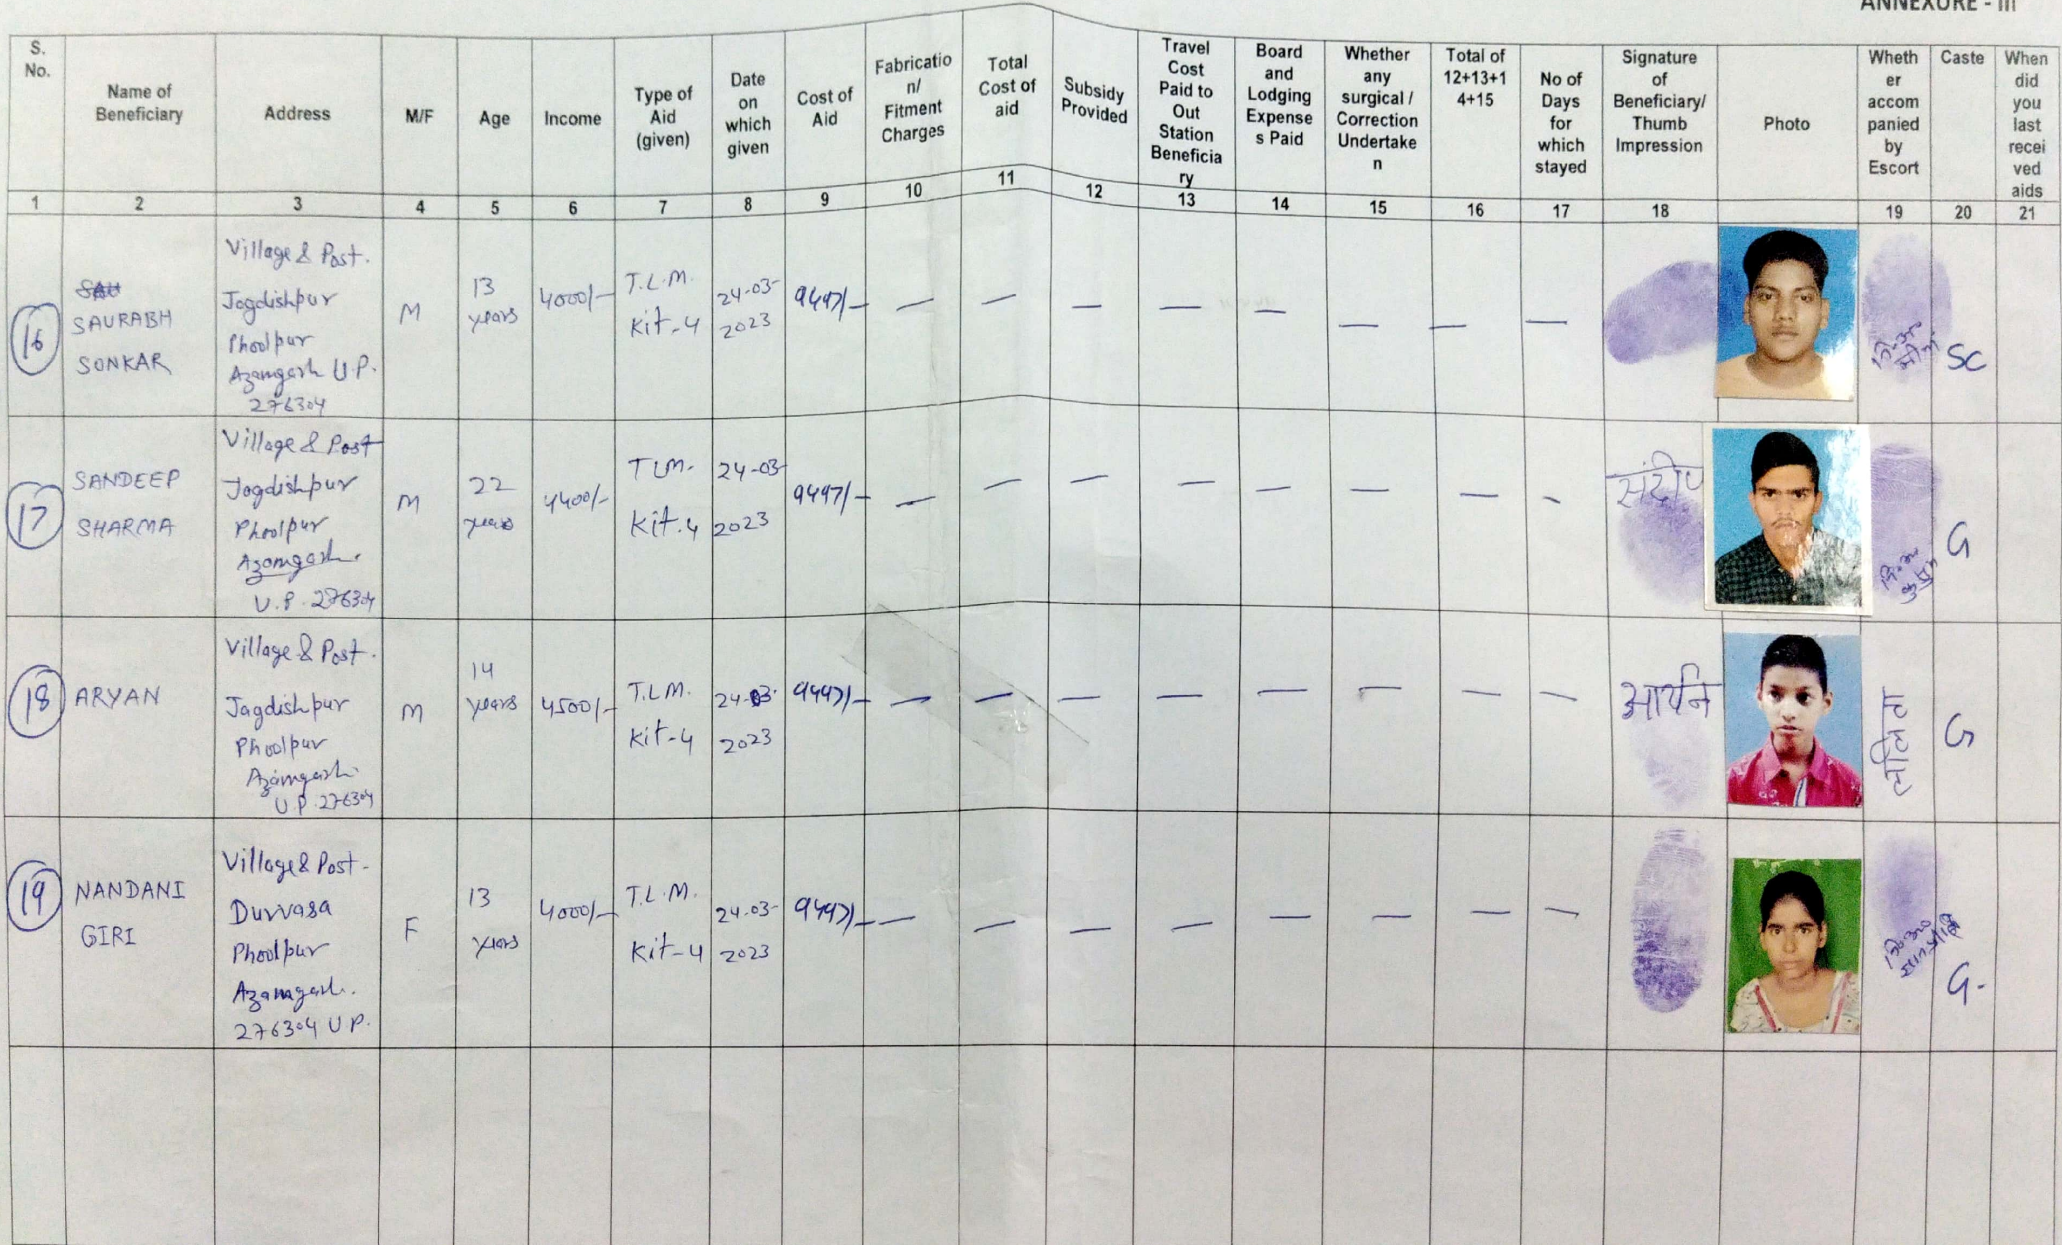 ANNEXURE - III
S. No.
Name of Beneficiary
Address
M/F
Age
Income
Type of Aid (given)
Date on which given
Cost of Aid
Fabricatio n/ Fitment Charges
Total Cost of aid
Subsidy Provided
Travel Cost Paid to Out Station Beneficia ry
Board and Lodging Expense s Paid
Whether any surgical / Correction Undertake n
Total of 12+13+1 4+15
No of Days for which stayed
Signature of Beneficiary/ Thumb Impression
Photo
Wheth er accom panied by Escort
Caste
When did you last recei ved aids
1 2 3 4 5 6 7 8 9 10 11 12 13 14 15 16 17 18 19 20 21
16
SAURABH
SONKAR
Village & Post.
Jagdishpur
Phoolpur
Azamgarh U.P.
276304
M
13
years
4000/-
T.L.M.
Kit-4
24-03-
2023
9447/-
— — — — — — — —
नि.अ.
SC
17
SANDEEP
SHARMA
Village & Post
Jagdishpur
Phoolpur
Azamgarh.
U.P. 276304
M
22
years
4400/-
TLM.
Kit.4
24-03-
2023
9447/-
— — — — — — — -
संदीप
नि.अ.
G
18
ARYAN
Village & Post.
Jagdishpur
Phoolpur
Azamgarh
U.P. 276304
M
14
years
4500/-
T.L.M.
Kit-4
24-03-
2023
9447/-
— — — — — — — —
आर्यन
ललिता
G
19
NANDANI
GIRI
Village & Post-
Durvasa
Phoolpur
Azamgarh.
276304 U.P.
F
13
years
4000/-
T.L.M.
Kit-4
24-03-
2023
9447/-
— — — — — — — —
नि.अ.
G-